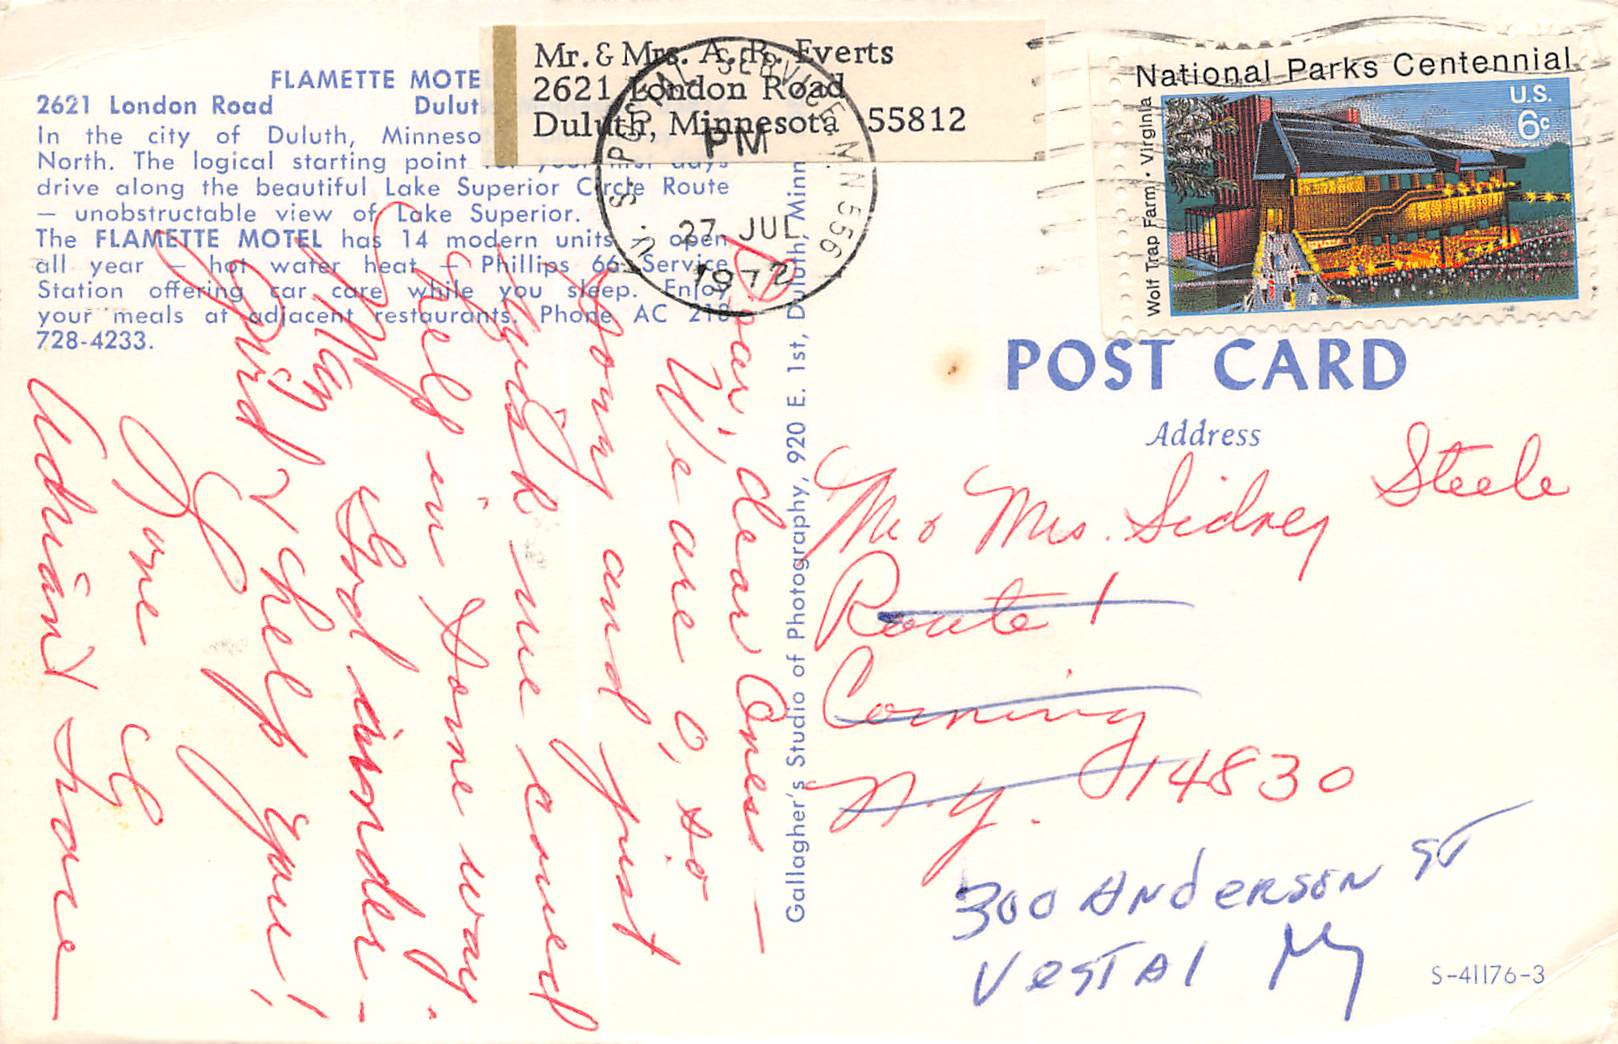 FLAMETTE MOTE
2621 London Road Dulut
In the city of Duluth, Minneso
North. The logical starting point for your first days
drive along the beautiful Lake Superior Circle Route
— unobstructable view of Lake Superior.
The FLAMETTE MOTEL has 14 modern units — open
all year — hot water heat — Phillips 66 Service
Station offering car care while you sleep. Enjoy
your meals at adjacent restaurants. Phone AC 218
728-4233.
Mr. & Mrs. A. R. Everts
2621 London Road
Duluth, Minnesota 55812
U.S. POSTAL SERVICE MN 556
PM
27 JUL
1972
National Parks Centennial
U.S.
6c
Wolf Trap Farm · Virginia
POST CARD
Address
Mr & Mrs. Sidney Steele
Route 1
Corning
N.Y. 14830
300 Anderson ST
Vestal NY
S-41176-3
Gallagher's Studio of Photography, 920 E. 1st, Duluth, Minn
Dear, dear Ones —
We are O, so
sorry and just
wish we could
help in some way.
May God in order -
Guid & help you!
Love
Adrian & Irone